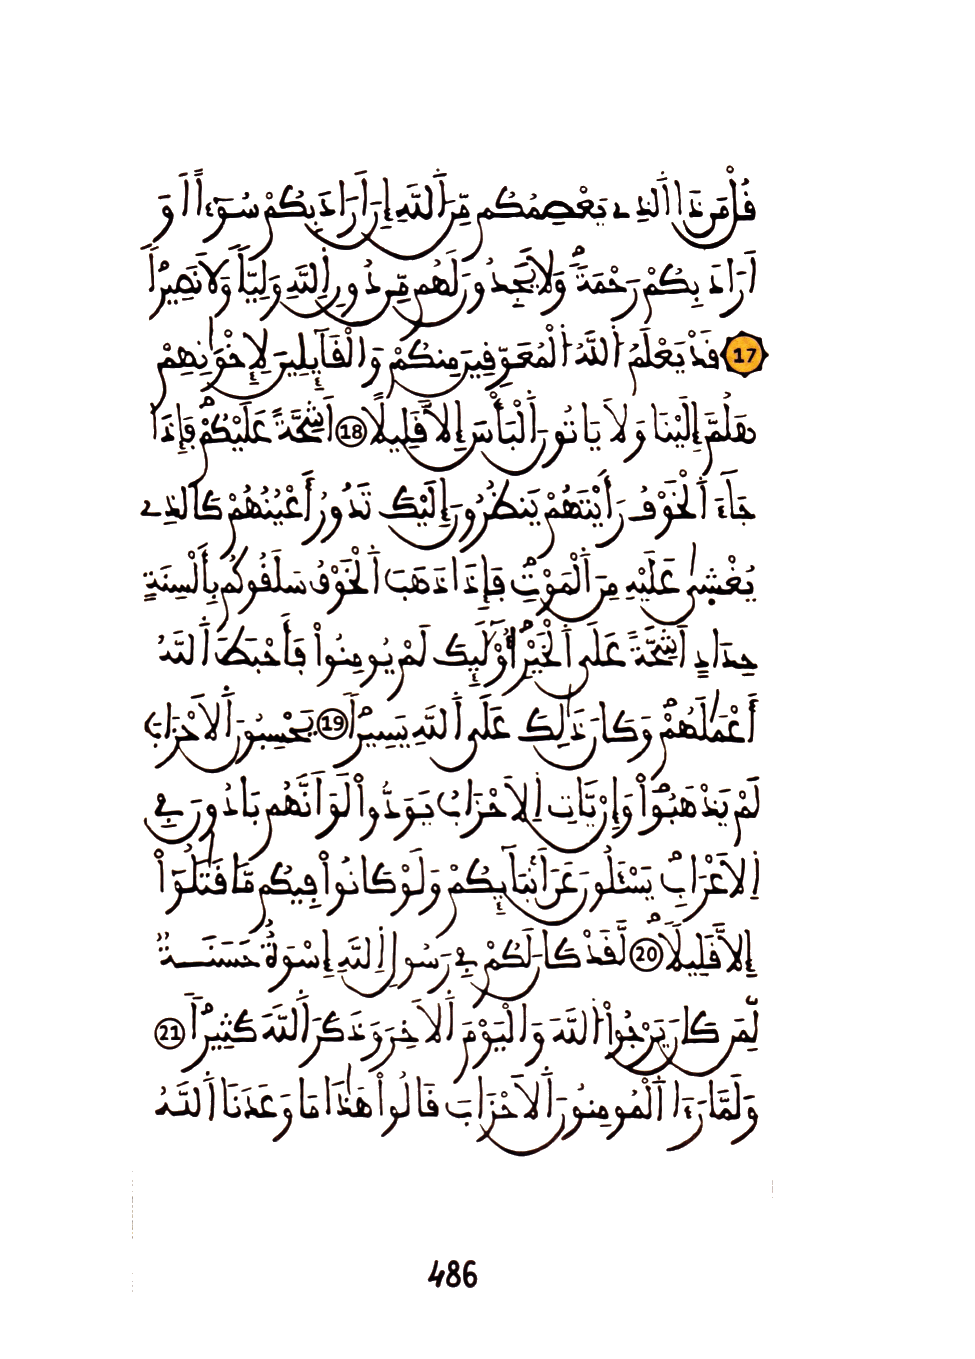 قُلْ مَن ذَا اَ۬لذِے يَعْصِمُكُم مِّنَ اَ۬للَّهِ إِنَ اَرَادَ بِكُمْ سُوٓءاً اَوَ
اَرَادَ بِكُمْ رَحْمَةٗ وَلَا يَجِدُونَ لَهُم مِّن دُونِ اِ۬للَّهِ وَلِيّاٗ وَلَا نَصِيراٗ
17 قَدْ يَعْلَمُ اُ۬للَّهُ اُ۬لْمُعَوِّقِينَ مِنكُمْ وَالْقَآئِلِينَ لِإِخْوَٰنِهِمْ
هَلُمَّ إِلَيْنَا وَلَا يَاتُونَ اَ۬لْبَأْسَ إِلَّا قَلِيلًا 18 اَشِحَّةً عَلَيْكُمْ فَإِذَا
جَآءَ اَ۬لْخَوْفُ رَأَيْتَهُمْ يَنظُرُونَ إِلَيْكَ تَدُورُ أَعْيُنُهُمْ كَالذِے
يُغْش۪ىٰ عَلَيْهِ مِنَ اَ۬لْمَوْتِ فَإِذَا ذَهَبَ اَ۬لْخَوْفُ سَلَقُوكُم بِأَلْسِنَةٍ
حِدَادٍ اَشِحَّةً عَلَى اَ۬لْخَيْرِ أُوْلَٰٓئِكَ لَمْ يُومِنُواْ فَأَحْبَطَ اَ۬للَّهُ
أَعْمَٰلَهُمْ وَكَانَ ذَٰلِكَ عَلَى اَ۬للَّهِ يَسِيراٗ 19 يَحْسِبُونَ اَ۬لَاحْزَابَ
لَمْ يَذْهَبُواْ وَإِنْ يَّاتِ اِ۬لَاحْزَابُ يَوَدُّواْ لَوَ اَنَّهُم بَادُونَ فِے
اِ۬لَاعْرَابِ يَسْـَٔلُونَ عَنَ اَنۢبَآئِكُمْ وَلَوْ كَانُواْ فِيكُم مَّا قَٰتَلُوٓاْ
إِلَّا قَلِيلٗا 20 لَّقَدْ كَانَ لَكُمْ فِے رَسُولِ اِ۬للَّهِ إِسْوَةٌ حَسَنَةٞ
لِّمَن كَانَ يَرْجُواْ اُ۬للَّهَ وَالْيَوْمَ اَ۬لَاخِرَ وَذَكَرَ اَ۬للَّهَ كَثِيراٗ 21
وَلَمَّا رَءَا اَ۬لْمُومِنُونَ اَ۬لَاحْزَابَ قَالُواْ هَٰذَا مَا وَعَدَنَا اَ۬للَّهُ
486